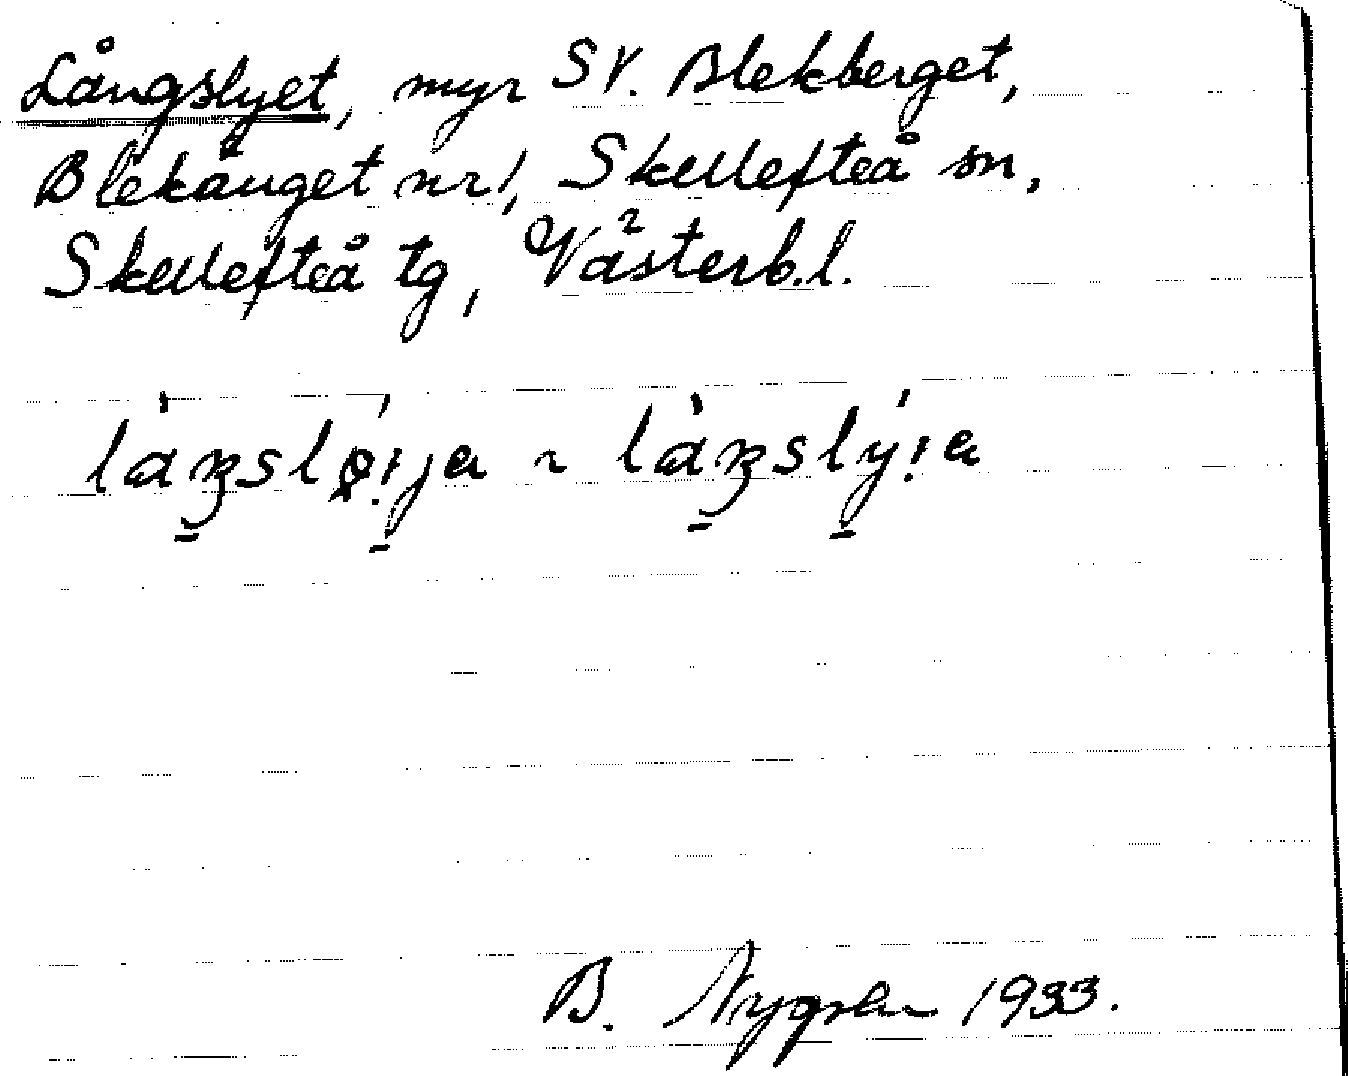 Långslyet, myr SV. Blekberget,
Blekänget nr 1, Skellefteå sn,
Skellefteå tg, Västerb.l.
B. Nygren 1933.